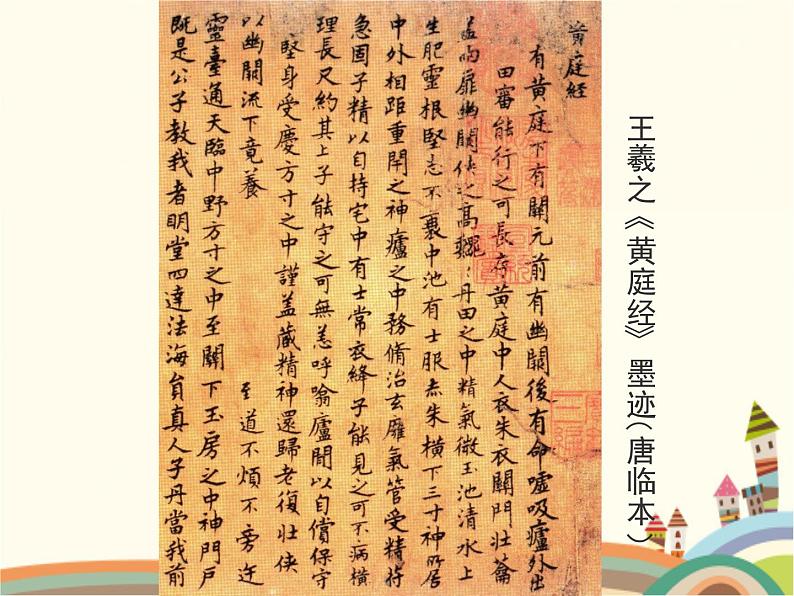 黄庭经
有黄庭下有關元前有幽闕後有命噓吸廬外出
田審能行之可長存黄庭中人衣朱衣關門壮蘥
盖两扉幽闕侠之高巍〻丹田之中精氣微玉池清水上
生肥靈根堅志不衰中池有士服赤朱横下三寸神所居
中外相距重閇之神廬之中務脩治玄㢐氣管受精符
急固子精以自持宅中有士常衣絳子能見之可不病横
理長尺約其上子能守之可無恙呼噏廬間以自償保守
堅身受慶方寸之中謹盖蔵精神還歸老復壮侠
以幽闕流下竟養 至道不煩不旁迕
靈臺通天臨中野方寸之中至闗下玉房之中神門户
既是公子教我者明堂四達法海員真人子丹當我前
王羲之《黄庭经》墨迹(唐临本)